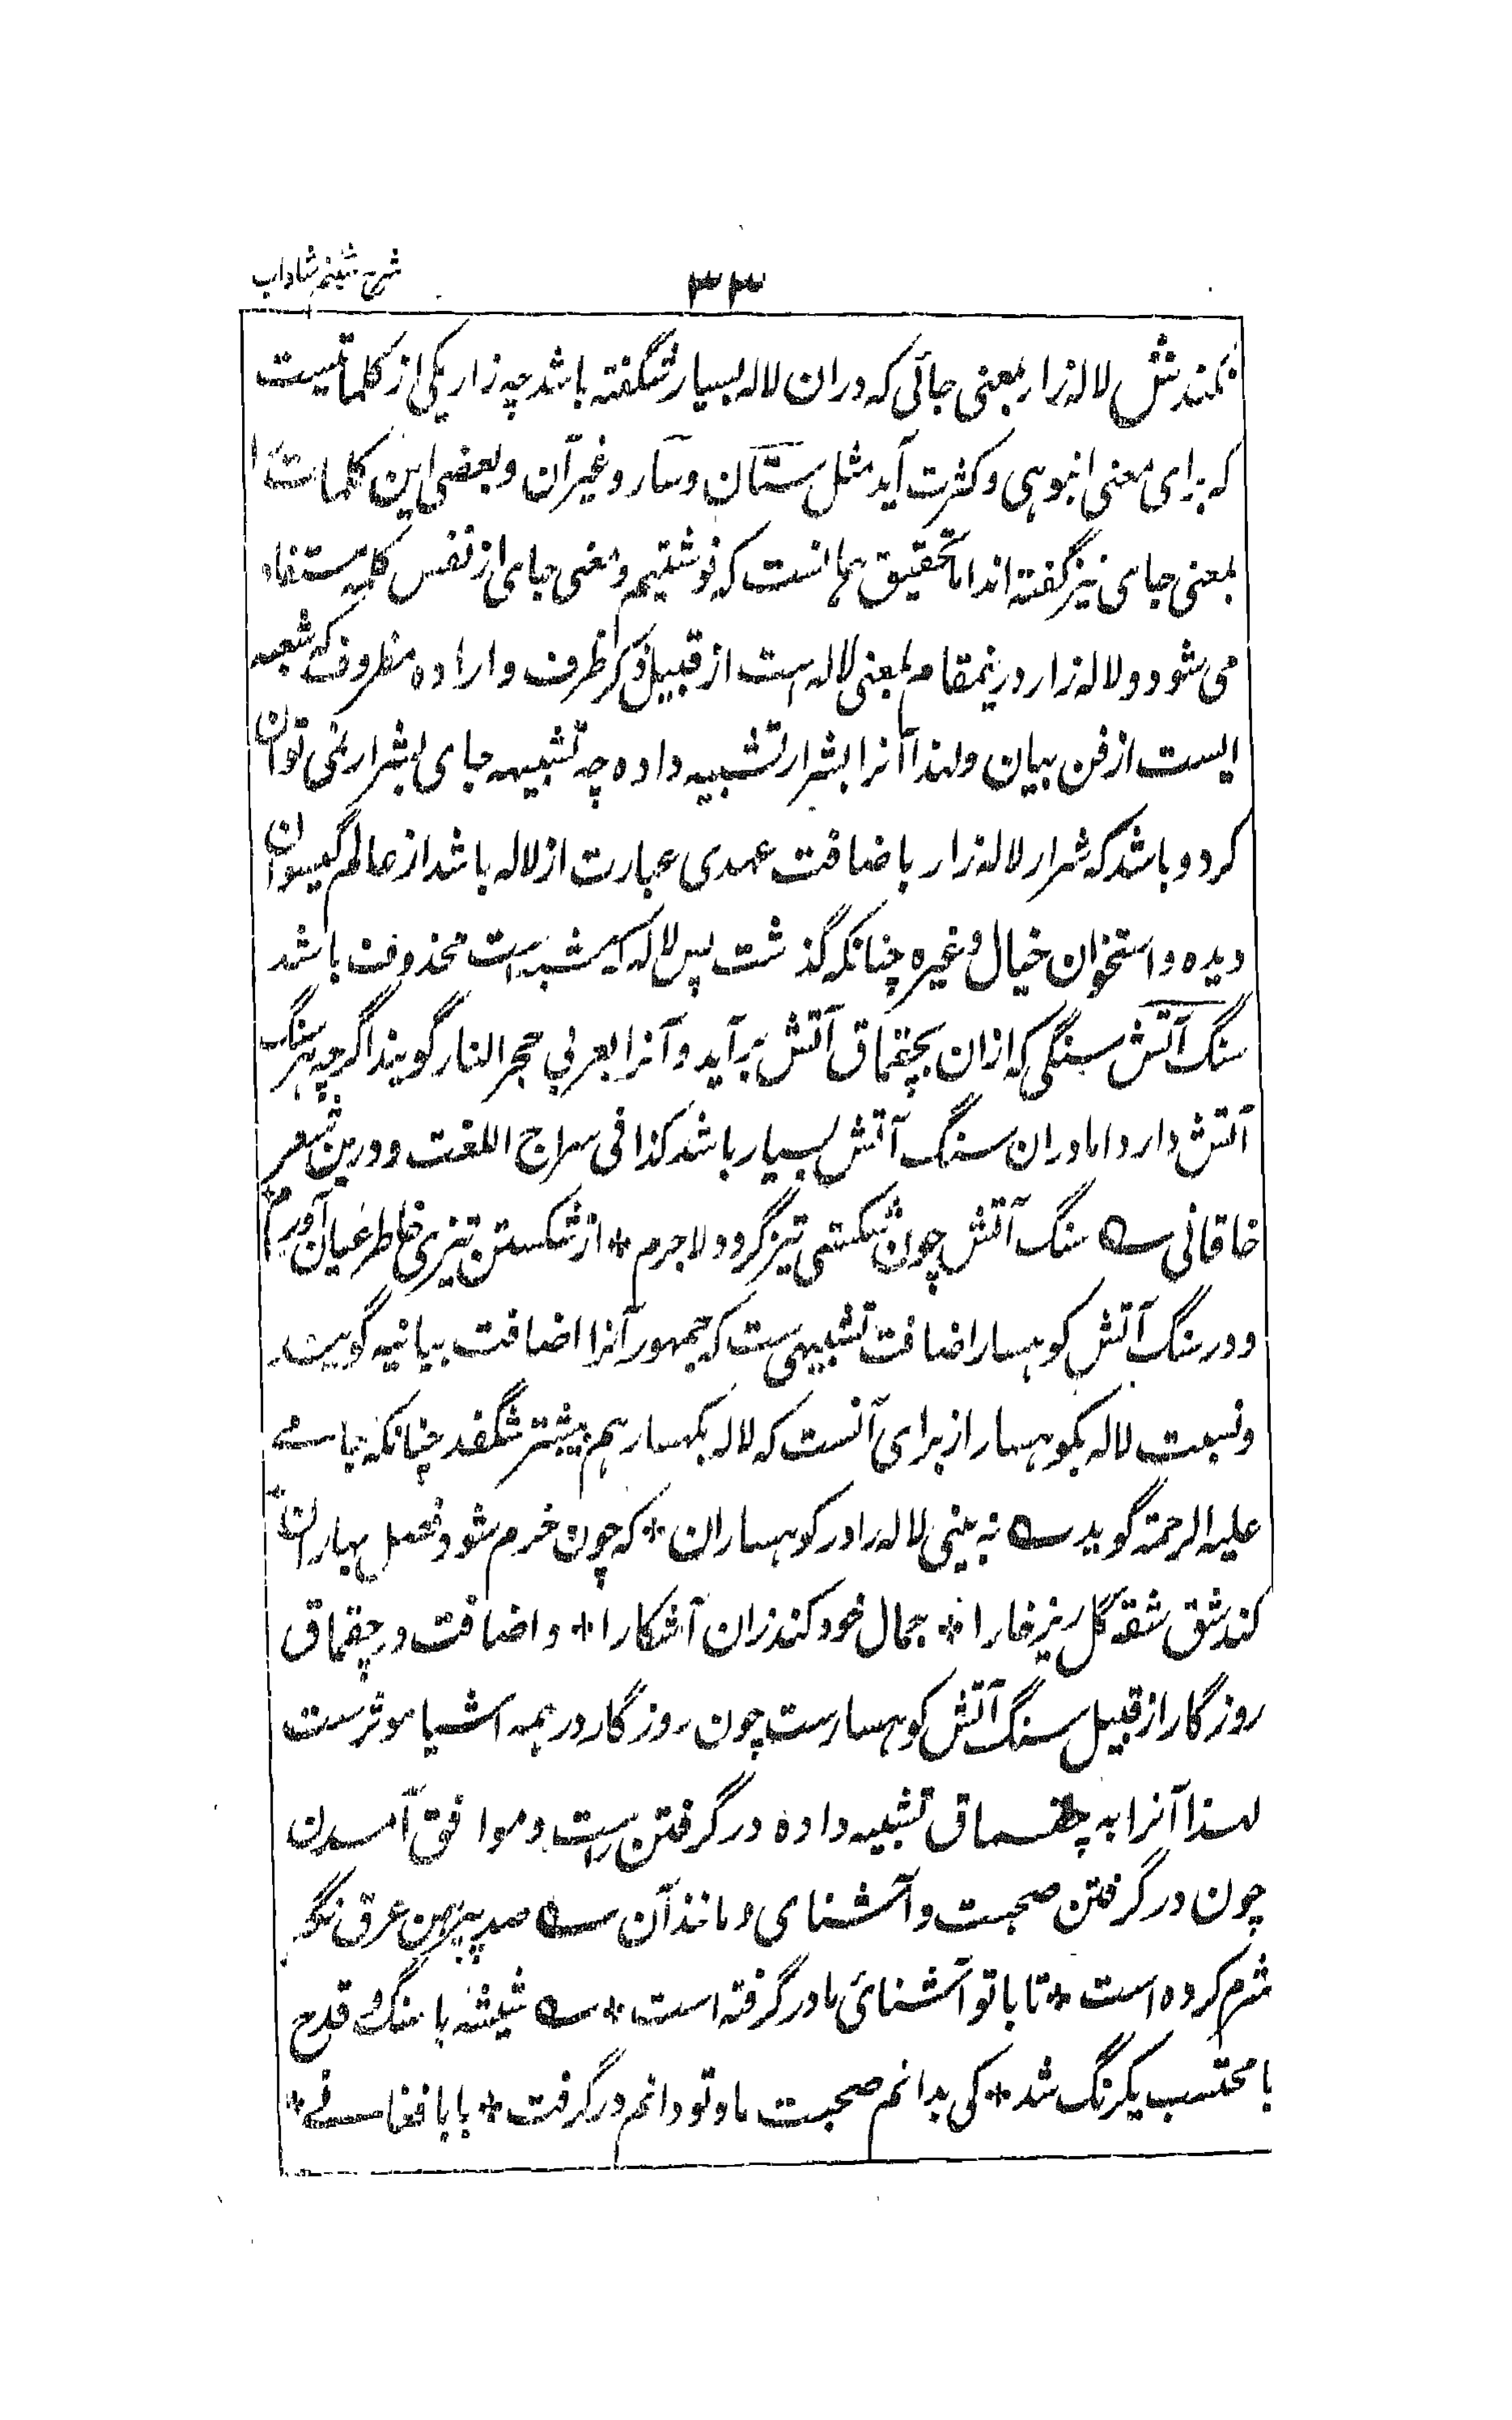 شرح شبنم شاداب
۳۳
نکنند مثل لاله زار بمعنی جائی که دران لاله بسیار شگفته باشد چه زار یکی از کلماتیست
که برای معنی انبوهی و کثرت آید مثل ستان و سار و غیر آن و بعضی این کلمات را
بمعنی جای نیز گفته اند اما تحقیق همانست که نوشتیم و معنی جای از نفس کلمه مستفاد
می شود و لاله زار درینمقام بمعنی لاله است از قبیل ذکر ظرف و اراده مظروف که شعبه
ایست از فن بیان و لهذا آنرا بشرار تشبیه داده چه تشبیهه جای بشرار نمی توان
کرد و باشد که شرار لاله زار باضافت عهدی عبارت از لاله باشد از عالم گیسوان
دیده و استخوان خیال و غیره چنانکه گذشت پس لاله که مشبه است محذوف باشد
سنگ آتش سنگی که ازان بچقماق آتش برآید و آنرا بعربی حجر النار گویند اگرچه هر سنگ
آتش دارد اما دران سنگ آتش بسیار باشد کذا فی سراج اللغت و درین شعر
خاقانی ؎ سنگ آتش چون شکستی تیز گردد لاجرم * از شکستن تیزی خاطر عیان آورده ام
و در سنگ آتش کوهسار اضافت تشبیهی ست که جمهور آنرا اضافت بیانیه گویند
و نسبت لاله بکوهسار از برای آنست که لاله بکهسار هم بیشتر شگفد چنانکه جامے
علیه الرحمة گوید ؎ نه بینی لاله را در کوهساران * که چون خرم شود فصل بهاران *
کند شق شقهٔ گل ریز خارا * جمال خود کند زان آشکارا * و اضافت در چقماق
روزگار از قبیل سنگ آتش کوهسارست چون روزگار در همه اشیا موثرست
لهذا آنرا به چقماق تشبیه داده در گرفتن راست و موافق آمدن
چون در گرفتن صحبت و آشنای و مانند آن ؎ صد پیرهن عرق نگه
شرم کرده است * تا با تو آشنائی ما در گرفته است * ؎ شیشه با سنگ و قدح
با محتسب یکرنگ شد * کی بدانم صحبت ما و تو دانم در گرفت * بابا فغانے *